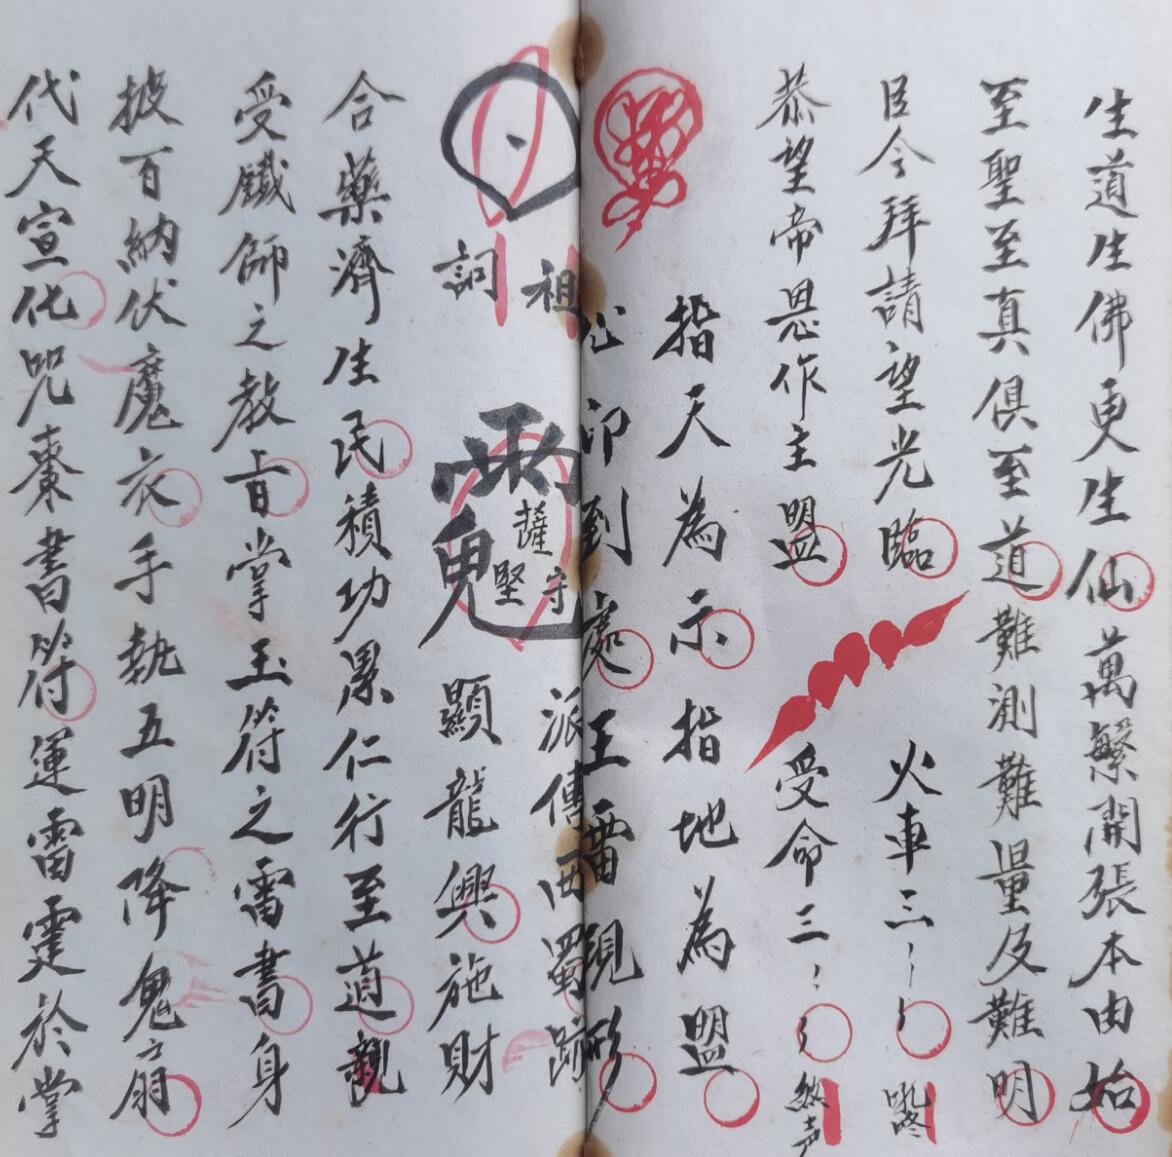 生道生佛更生仙萬繁開張本由始
至聖至真俱至道難測難量及難明
臣今拜請望光臨 火車三
恭望帝恩作主盟 受命三 聲
指天為示指地為盟
心印到處王雷現形
祖
派傳西蜀跡
詞
薩守堅
顯龍興施財
合藥濟生民積功累仁行至道親
受鐵師之教旨掌玉符之雷書身
披百納伏魔衣手執五明降鬼扇
代天宣化咒棗書符運雷霆於掌